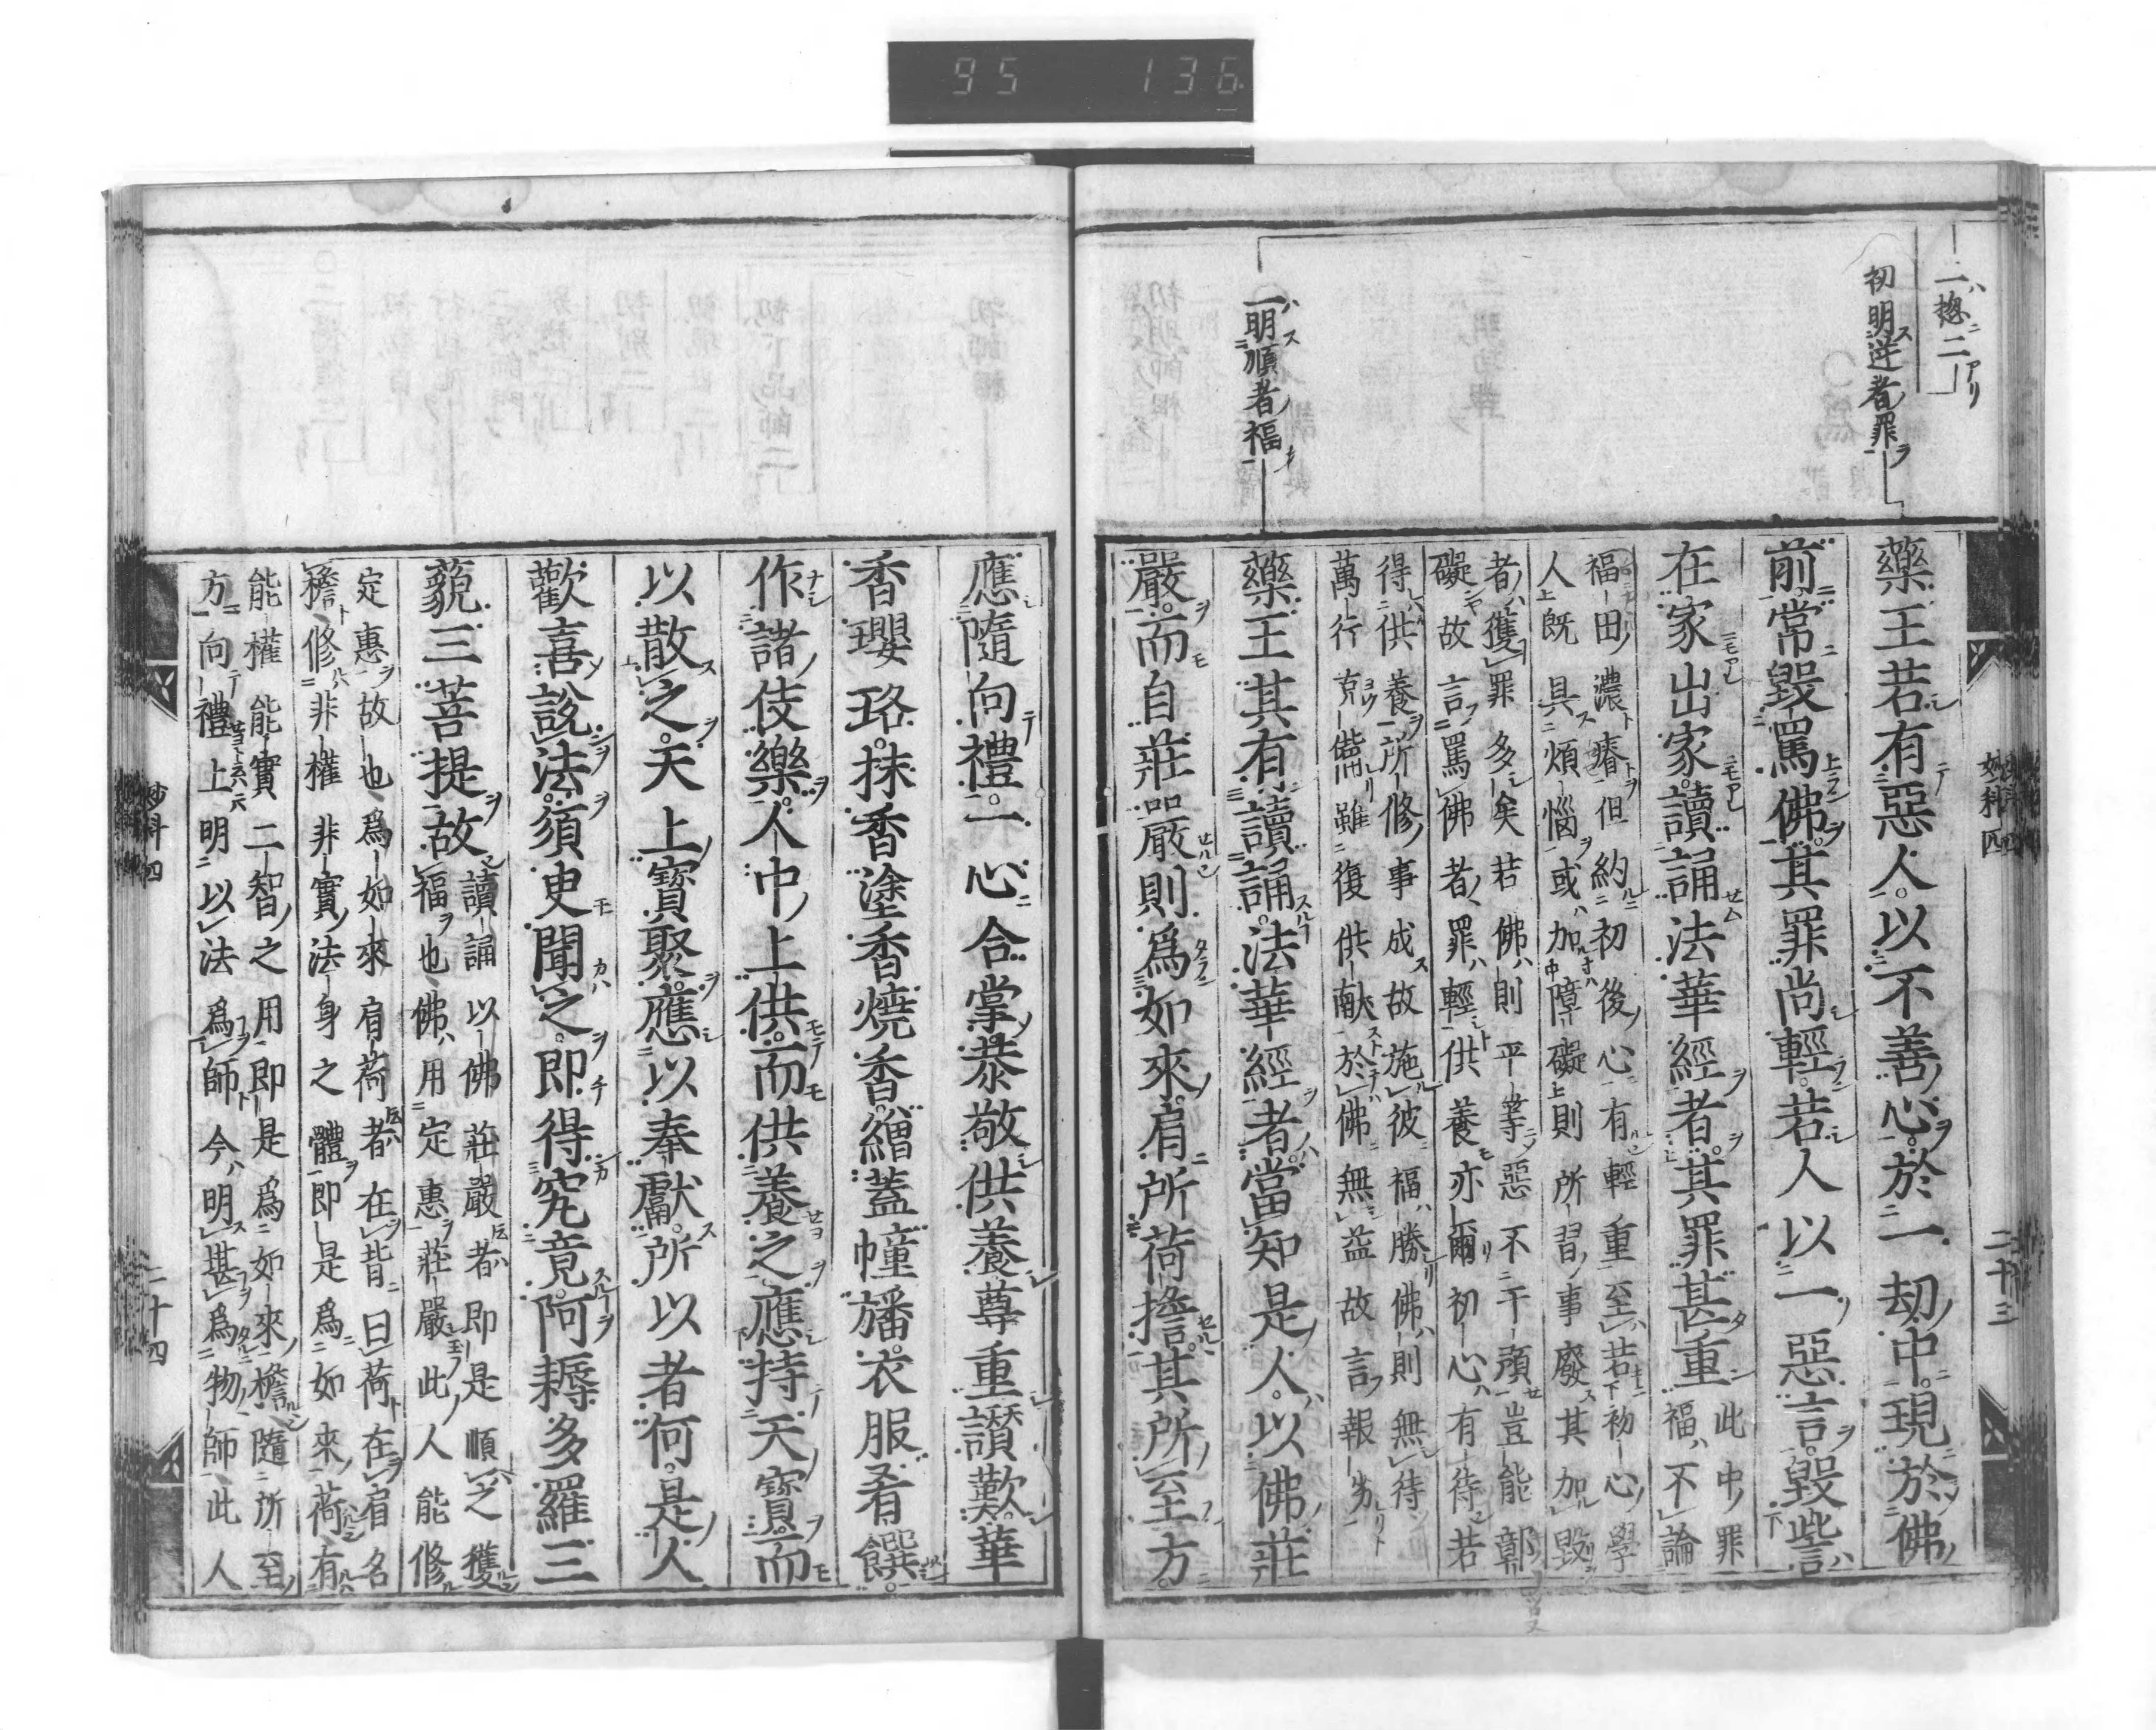 95 136
二揔二
初明逆者罪
二明順者福
藥王若有惡人以不善心於一劫中現於佛
前常毀罵佛其罪尚輕若人以一惡言毀訾
在家出家讀誦法華經者其罪甚重
此中罪
福不論
福田濃瘠但約初後心有輕重至若初心學
人既具煩惱或加障礙則所習事廢其加毀
者獲罪多矣若佛則平等惡不干頭豈能鄣
礙故言罵佛者罪輕供養亦爾初心有待若
得供養所修事成故施彼福勝佛則無待
萬行克備雖復供献於佛無益故言報劣
藥王其有讀誦法華經者當知是人以佛莊
嚴而自莊嚴則爲如來肩所荷擔其所至方
妙科四
二十三
應隨向禮一心合掌恭敬供養尊重讃歎華
香瓔珞抹香塗香燒香繒蓋幢旛衣服肴饌
作諸伎樂人中上供而供養之應持天寶而
以散之天上寶聚應以奉獻所以者何是人
歡喜說法須臾聞之即得究竟阿耨多羅三
藐三菩提故
讀誦以佛莊嚴者即是順之獲
福也佛用定惠莊嚴此人能修
定惠故也爲如來肩荷者在背曰荷在肩名
檐修非權非實法身之體即是爲如來荷有
能權能實二智之用即是爲如來檐隨所至
方向禮上明以法爲師今明堪爲物師此人
妙科四
二十四